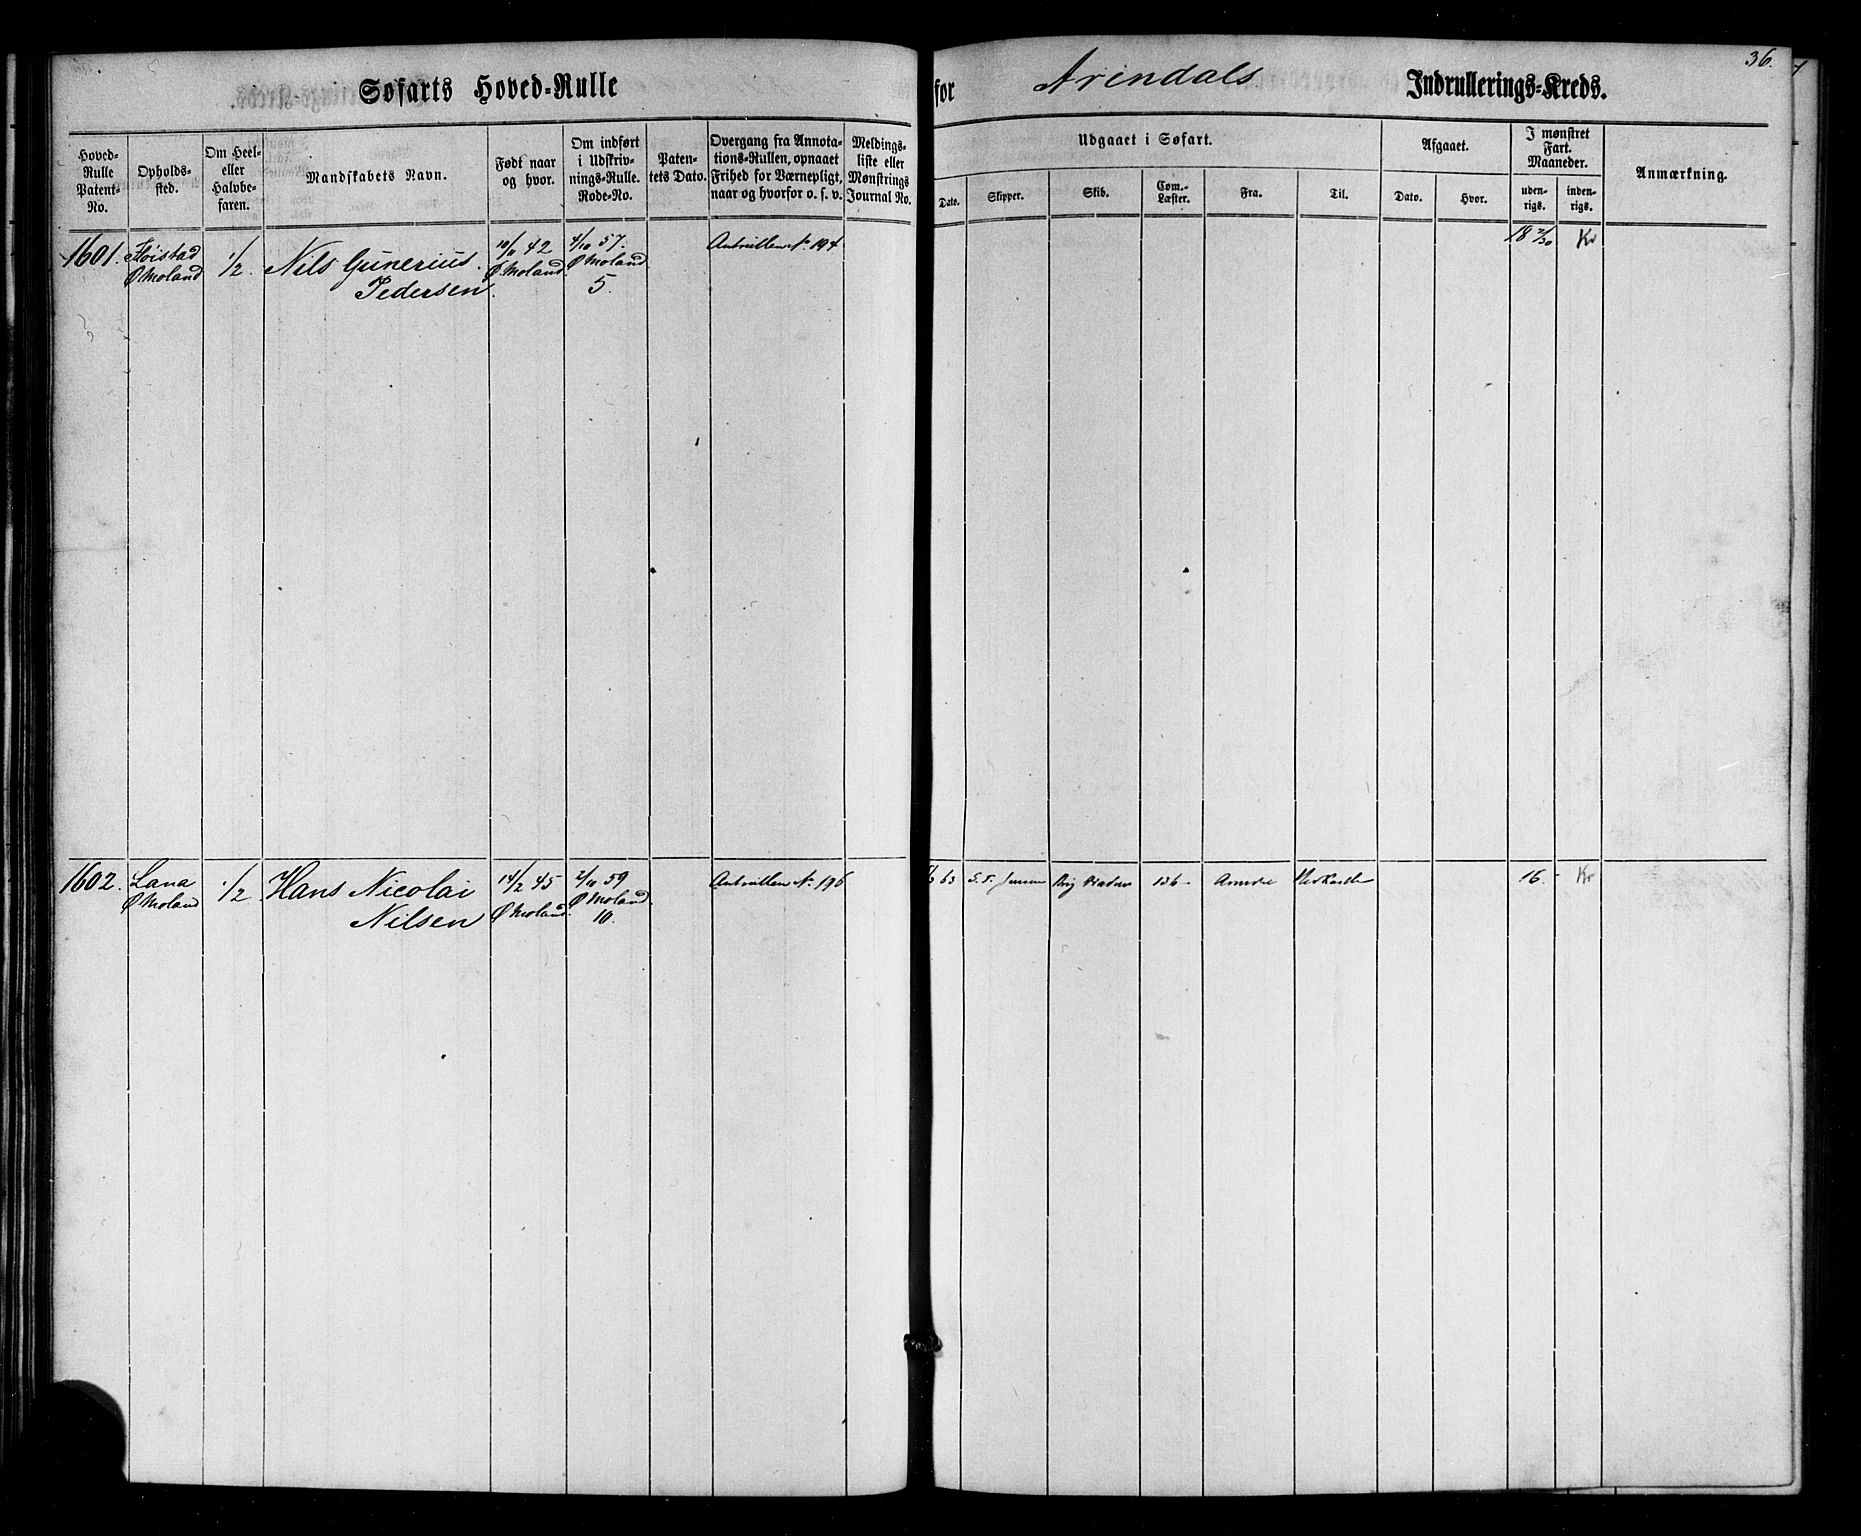 36.
Søfarts Hoved-Rulle for Arendals Indrullerings-Kreds.
Hoved-Rulle Patent-No.
Opholds-sted.
Om Heel- eller Halvbe-faren.
Mandskabets Navn.
Født naar og hvor.
Om indført i Udskriv-nings-Rulle. Rode-No.
Paten-tets Dato.
Overgang fra Annota-tions-Rullen, opnaaet Frihed for Værnepligt, naar og hvorfor o. s. v.
Meldings-liste eller Mønstrings Journal No.
Udgaaet i Søfart.
Dato.
Skipper.
Skib.
Com.-Læster.
Fra.
Til.
Afgaaet.
Dato.
Hvor.
I mønstret Fart. Maaneder.
uden-rigs.
inden-rigs.
Anmærkning.
1601. Fløistad 1/2 Nils Gunerius 10/11 42 4/10 57. Antrullen No 194 18 2/30 Kr
Ø Moland Pedersen. Ø Moland. Ø Moland
5.
1602. Lana 1/2 Hans Nicolai 14/2 45 2/10 59 Antrullen No 196 63 S. T. Jensen Brig 136 - 16. - Kr
Ø Moland Nilsen Ø Moland. Ø Moland.
10.